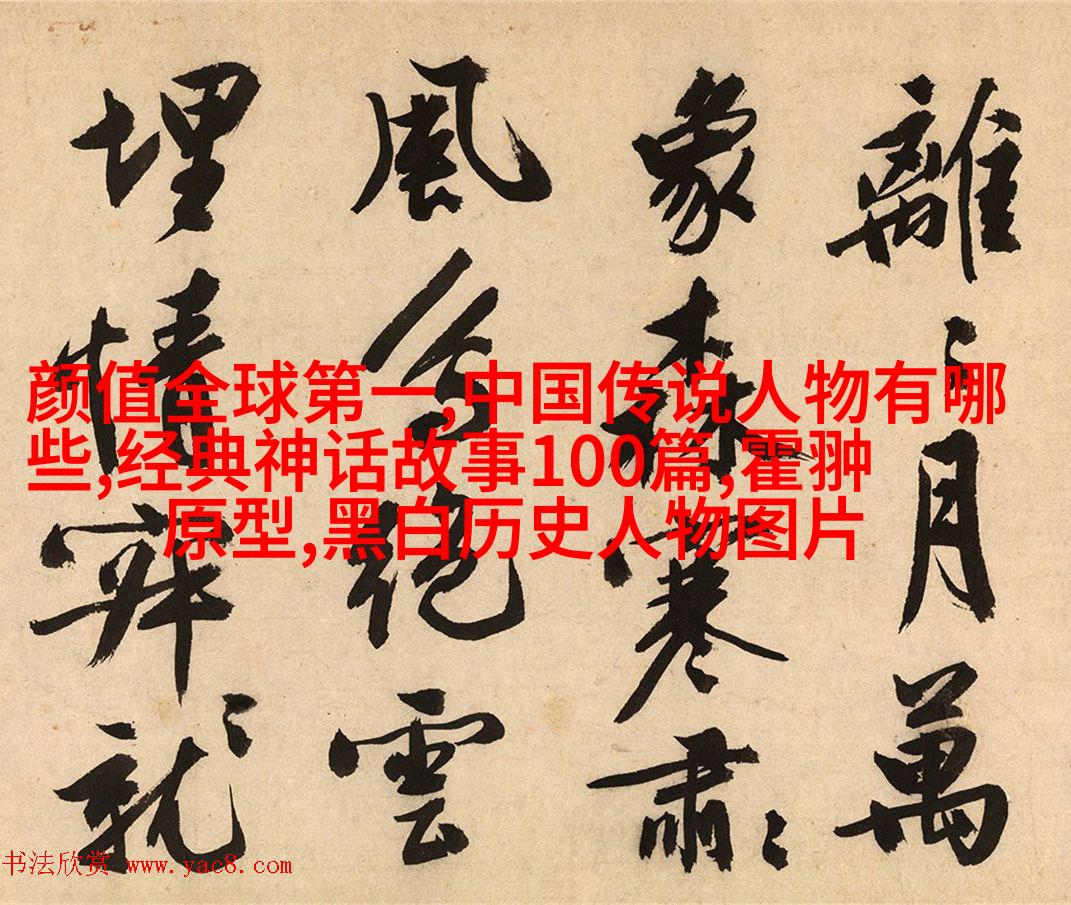 離〻月萬
象森寒肅〻
風絕雲
埋情就〻
颜值全球第一,中国传说人物有哪
些,经典神话故事100篇,霍翀
原型,黑白历史人物图片
书法欣赏 www.yac8.com